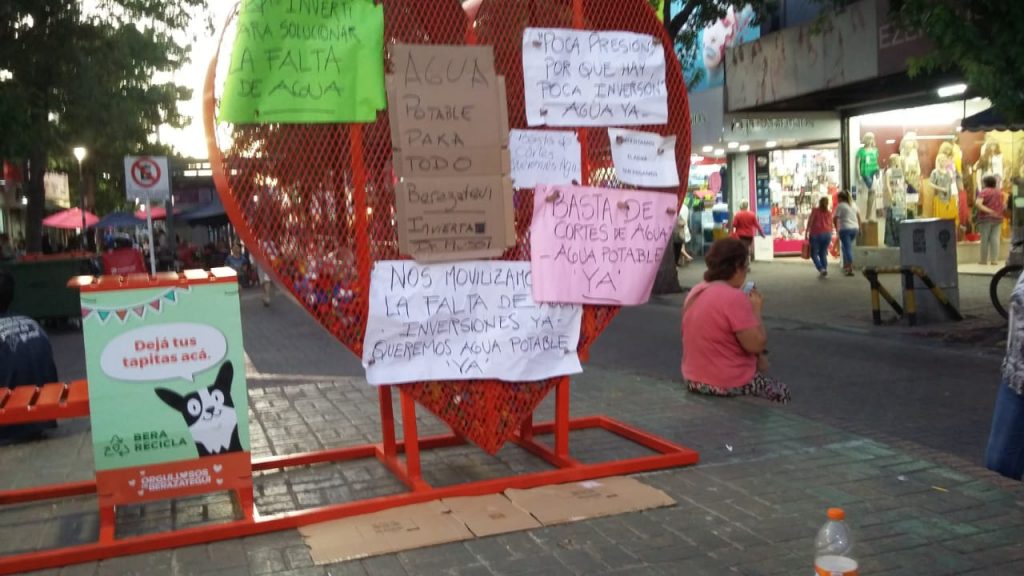 INVERTI
PARA SOLUCIONAR
LA FALTA
DE AGUA
AGUA
POTABLE
PARA
TODO
Berazategui
Invierta
"POCA PRESION
POR QUE HAY
POCA INVERSON"
AGUA YA
Basta de
Cortes
BASTA DE
CORTES DE AGUA
AGUA POTABLE
'YA'
NOS MOVILIZAMO
LA FALTA DE
INVERSIONES YA-
QUEREMOS AGUA POTABLE
'YA'
Dejá tus
tapitas acá.
BERA
RECICLA
ORGULLOSOS
BERAZATEGUI